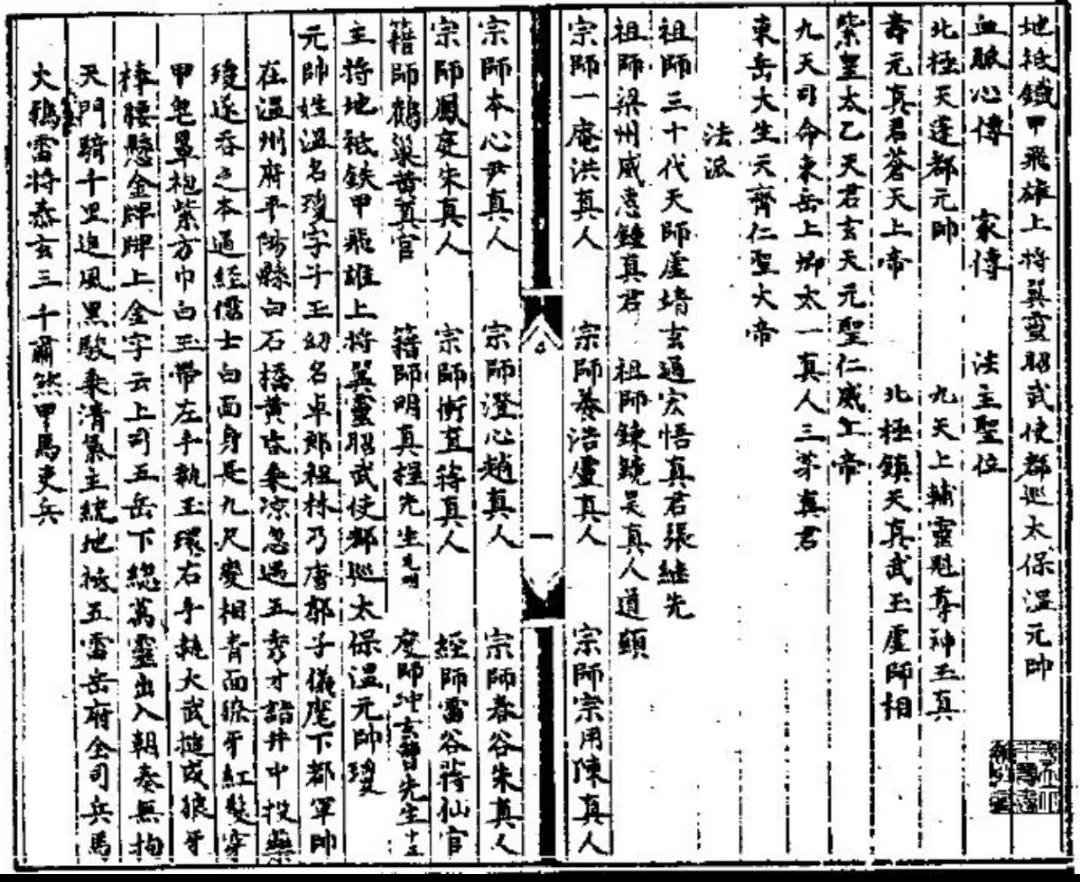 地祇鐡甲飛雄上將翼靈昭武使都巡太保溫元帥
血脉心傳　家傳　法主聖位
北極天蓬都元帥　九天上輔靈魁尊神玉真
壽元真君蒼天上帝　北極鎮天真武玉虛師相
紫皇太乙天君玄天元聖仁威上帝
九天司命東岳上卿太一真人三茅真君
東岳大生天齊仁聖大帝
法派
祖師三十代天師虛靖玄通宏悟真君張継先
祖師梁州威惠鍾真君　祖師鍊鏡吴真人道顯
宗師一庵洪真人　宗師養浩盧真人　宗師宗用陳真人
一
宗師本心尹真人　宗師澄心趙真人　宗師春谷朱真人
宗師鳳庭宋真人　宗師衝宜蒋真人　經師雷谷蒋仙官
籍師鶴巢黄真官　籍師明真程先生　度師冲玄先生
主將地祇鉄甲飛雄上將翼靈昭武使都巡太保溫元帥瓊
元帥姓溫名瓊字子玉幼名卓郎祖林乃唐郭子儀麾下都軍帥
在溫州府平陽縣白石橋黄昏乗凉忽遇五秀才詣井中投藥
瓊遂吞之本過經儒士白面身長九尺變相青面獠牙紅髮穿
甲皂罩袍紫方巾白玉帶左手執玉環右手執大武搥或狼牙
棒腰懸金牌牌上金字云上司五岳下総萬靈出入朝奏無拘
天門騎千里追風黑駿乗清氣主統地祇五雷岳府全司兵馬
大鵶雷將泰玄三千肅煞甲馬吏兵